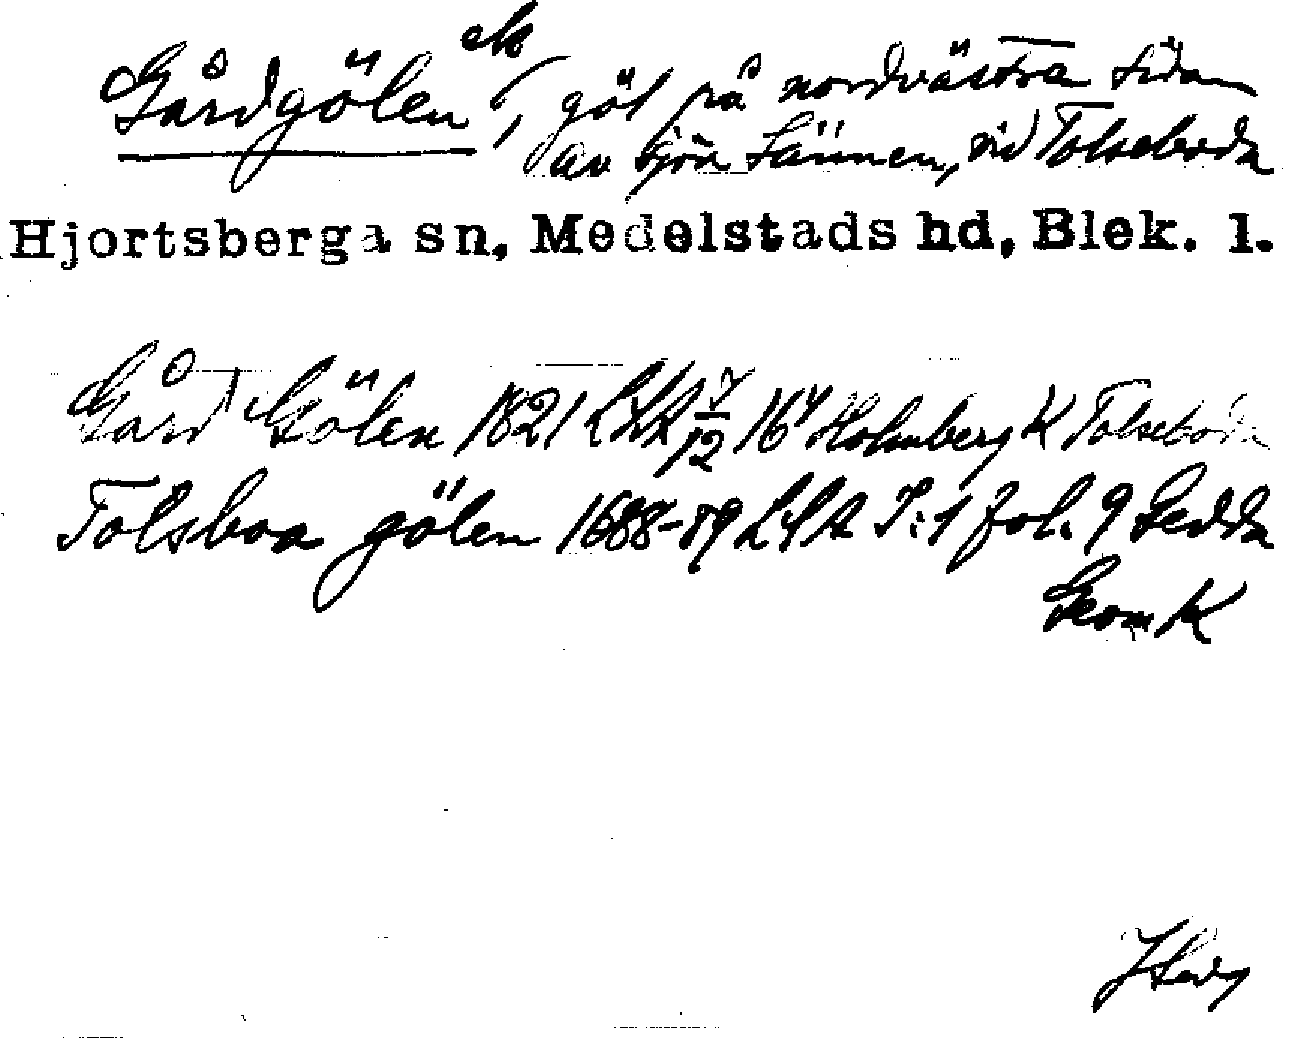 Gårdgölen ek, göl på nordvästra sidan
av sjön Sännen, vid Tolseboda
Hjortsberga sn, Medelstads hd, Blek. l.
Gård Gölen 1821 LSA 7/12 16 Holmberg K Tolseboda
Tolsboa gölen 1688-89 LSA I:1 fol. 9 Gedda
Geom K